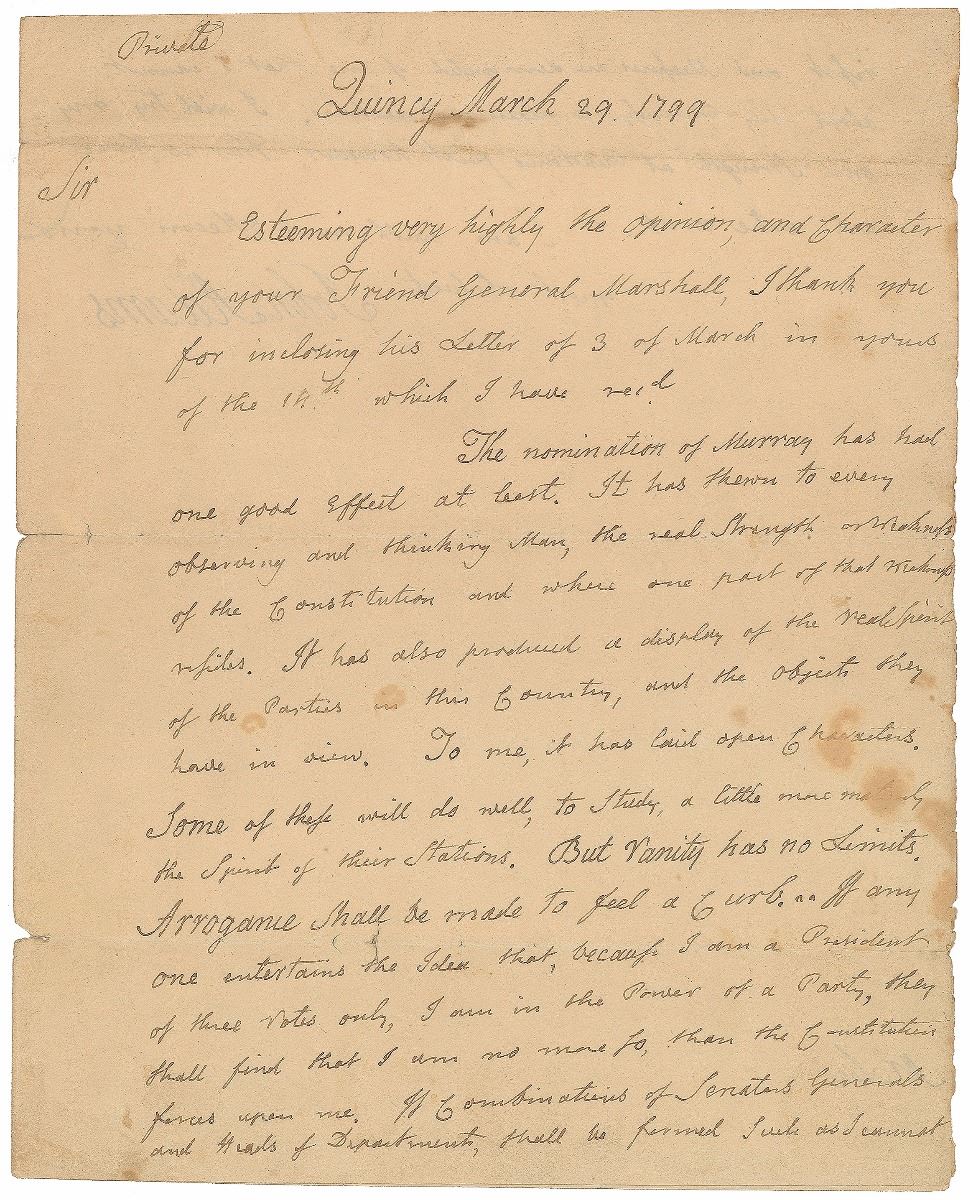 Private
Quincy March 29. 1799
Sir
Esteeming very highly the opinion, and Character
of your Friend General Marshall, I thank you
for inclosing his Letter of 3 of March in yours
of the 14.th which I have recd.
The nomination of Murray has had
one good Effect at least. It has shewn to every
observing and thinking Man, the real Strength or Weakness
of the Constitution and where one part of that Weakness
resides. It has also produced a display of the real Spirit
of the Parties in this Country, and the objects they
have in view. To me, it has laid open Characters.
Some of these will do well, to Study, a little more maturely
the Spirit of their Stations. But Vanity has no Limits.
Arrogance shall be made to feel a Curb. .. If any
one entertains the Idea that, because I am a President
of three Votes only, I am in the Power of a Party, they
shall find that I am no more so, than the Constitution
forces upon me. If Combinations of Senators Generals
and Heads of Departments, shall be formed Such as I cannot